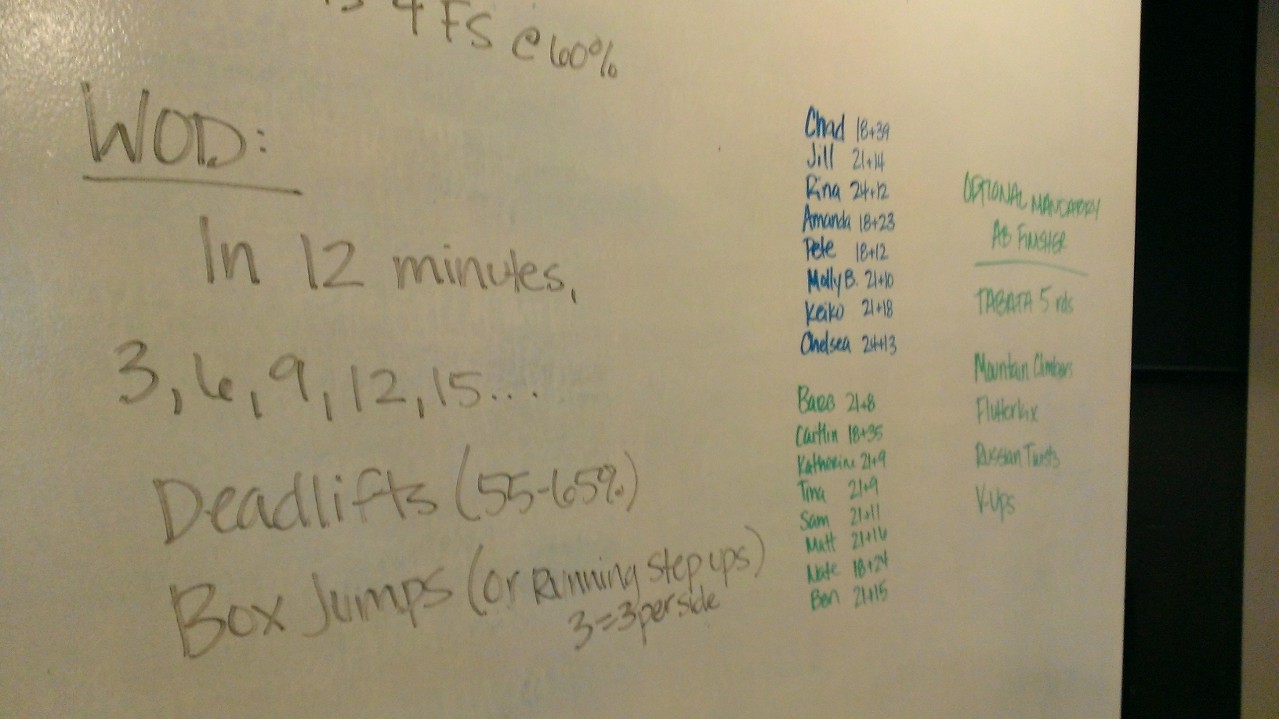 4 FS @ 60%
WOD:
In 12 minutes,
3, 6, 9, 12, 15...
Deadlifts (55-65%)
Box Jumps (or Running Step ups)
3=3 per side
Chad 18+39
Jill 21+14
Rina 24+12
Amanda 18+23
Pete 18+12
Molly B. 21+10
Keiko 21+18
Chelsea 24+13
Barb 21+8
Caitlin 18+35
Katherine 21+9
Tina 21+9
Sam 21+11
Matt 21+16
Nate 18+24
Ben 21+15
OPTIONAL MANDATORY
AB FINSIER
TABATA 5 rds
Mountain Climbers
Flutterkix
Russian Twists
V-Ups